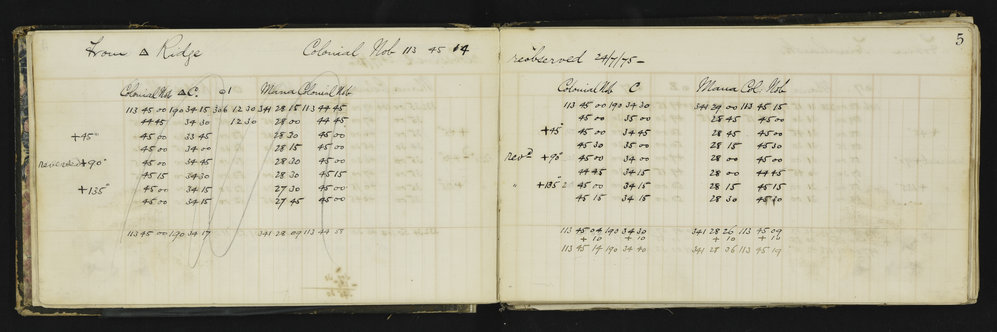 From △ Ridge Colonial Nob 113 45 14
Colonial Nob △C. ⊙1 Mana Colonial Nob
113 45 00 190 34 15 306 12 30 341 28 15 113 44 45
44 45 34 30 12 30 28 00 44 45
+45° 45 00 33 45 28 30 45 00
45 00 34 00 28 15 45 00
reversed +90° 45 00 34 45 28 30 45 00
45 15 34 30 28 30 45 15
+135° 45 00 34 15 27 30 45 00
45 00 34 15 27 45 45 00
113 45 00 190 34 17 341 28 09 113 44
5
reobserved 24/7/75 -
Colonial Nob C Mana Col. Nob
113 45 00 190 34 30 341 29 00 113 45 15
45 00 35 00 28 45 45 00
+45° 45 00 34 45 28 45 45 00
45 30 35 00 28 15 45 30
revd +90° 45 00 34 00 28 00 45 00
44 45 34 15 28 00 44 45
" +135° 45 00 34 15 28 15 45 15
45 15 34 15 28 30 45
113 45 04 190 34 30 341 28 26 113 45 09
+ 10 + 10 + 10 + 10
113 45 14 190 34 40 341 28 36 113 45 19